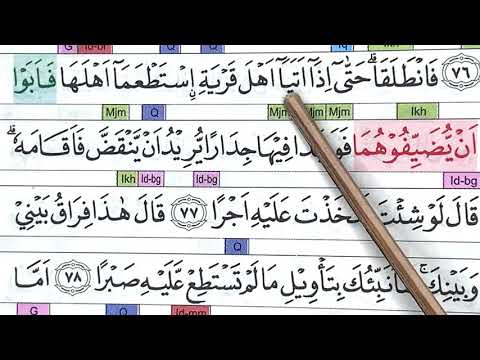 G Id-bl
٧٦ فَانْطَلَقَاۗ حَتّٰىٓ اِذَآ اَتَيَآ اَهْلَ قَرْيَةِ ِۨاسْتَطْعَمَآ اَهْلَهَا فَاَبَوْا
Mjm Q Mjm Mjm Mjm Ikh
اَنْ يُّضَيِّفُوْهُمَا فِيْهَا جِدَارًا يُّرِيْدُ اَنْ يَّنْقَضَّ فَاَقَامَهٗ ۗ
Ikh Id-bg Id-bg Id-bg
قَالَ لَوْ شِئْتَ عَلَيْهِ اَجْرًا ٧٧ قَالَ هٰذَا فِرَاقُ بَيْنِيْ
Q
وَبَيْنِكَۚ بِتَأْوِيْلِ مَا لَمْ تَسْتَطِعْ عَّلَيْهِ صَبْرًا ٧٨ اَمَّا
G Q Id-mm